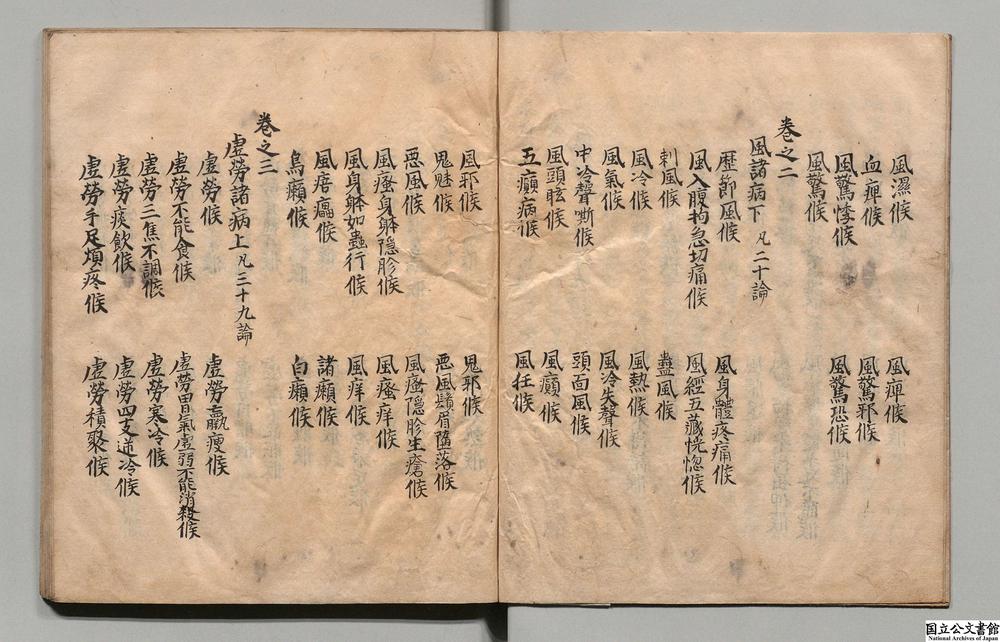 風濕候
風痺候
血痺候
風驚邪候
風驚悸候
風驚恐候
風驚候
巻之二
風諸病下 凡二十論
歴節風候
風身體疼痛候
風入腹拘急切痛候
風經五藏恍惚候
刺風候
蠱風候
風冷候
風熱候
風氣候
風冷失聲候
中冷聲嘶候
頭面風候
風頭眩候
風癲候
五癲病候
風狂候
風邪候
鬼邪候
鬼魅候
惡風鬚眉墮落候
惡風候
風瘙隱胗生瘡候
風瘙身躰隱胗候
風瘙痒候
風身躰如蟲行候
風痒候
風痦㿔候
諸癩候
烏癩候
白癩候
巻之三
虛勞諸病上 凡三十九論
虛勞候
虛勞羸瘦候
虛勞不能食候
虛勞胃氣虛弱不能消穀候
虛勞三焦不調候
虛勞寒冷候
虛勞痰飲候
虛勞四支逆冷候
虛勞手足煩疼候
虛勞積聚候
国立公文書館
National Archives of Japan